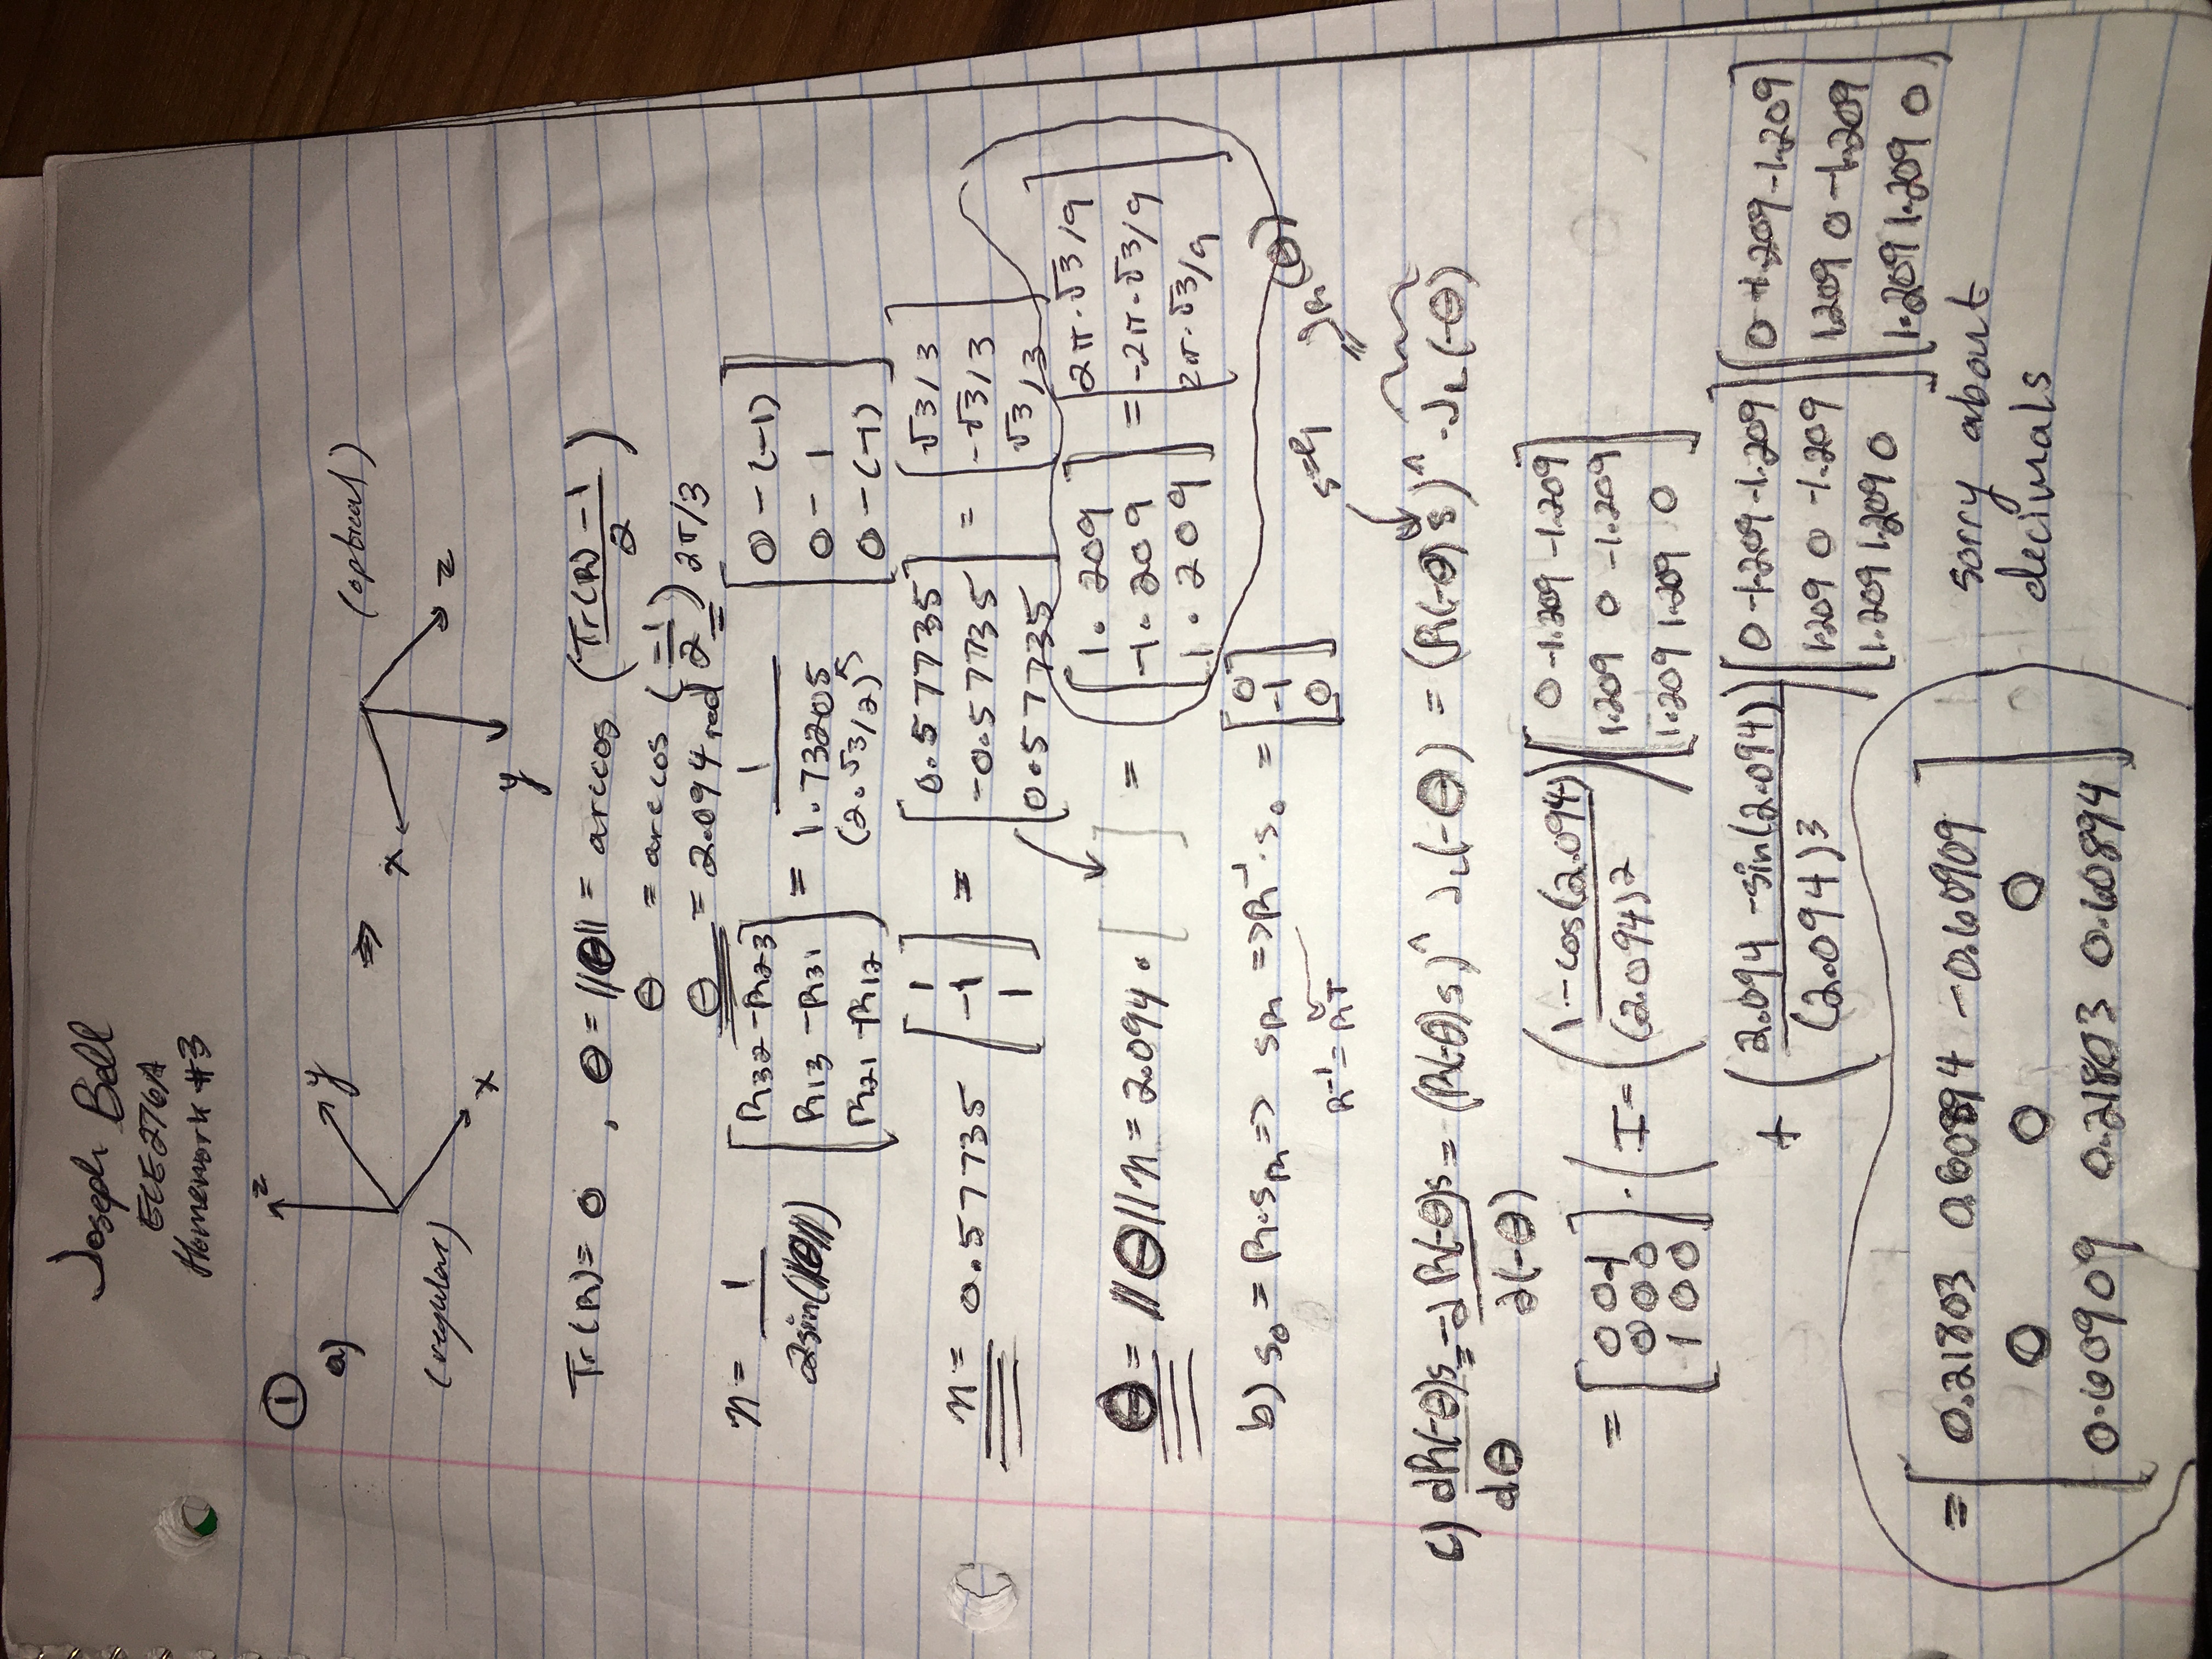 Joseph Bell
ECE276A
Homework #3
①
a)
z
y
x
(regular)
⇒
(optical)
x
z
y
Tr(R) = 0 , θ = ||θ|| = arccos (Tr(R) - 1 / 2)
θ = arccos (-1 / 2)
θ = 2.094 rad = 2π/3
n = 1 / 2sin(||θ||) [R32 - R23; R13 - R31; R21 - R12] = 1 / 1.73205 (2·√3/2) [0 - (-1); 0 - 1; 0 - (-1)]
n = 0.57735 [1; -1; 1] = [0.57735; -0.57735; 0.57735] = [√3/3; -√3/3; √3/3]
θ = ||θ|| n = 2.094 · [ ] = [1.209; -1.209; 1.209] = [2π·√3/9; -2π·√3/9; 2π·√3/9]
b) s₀ = R·s_R => s_R => R⁻¹·s₀ = [0; -1; 0]
R⁻¹ = Rᵀ
J_R(θ)
c) dR(-θ)s / dθ = -∂R(-θ)s / ∂(-θ) = (R(-θ)s)^ J_L(-θ) = (R(-θ)s)^ · J_L(-θ)
= [0 0 -1; 0 0 0; 1 0 0] · (I - (1 - cos(2.094) / (2.094)²) [0 -1.209 -1.209; 1.209 0 -1.209; 1.209 1.209 0]
+ (2.094 - sin(2.094) / (2.094)³) [0 -1.209 -1.209; 1.209 0 -1.209; 1.209 1.209 0] [0 -1.209 -1.209; 1.209 0 -1.209; 1.209 1.209 0]
= [0.21803 0.60894 -0.60909; 0 0 0; 0.60909 0.21803 0.60894]
sorry about
decimals